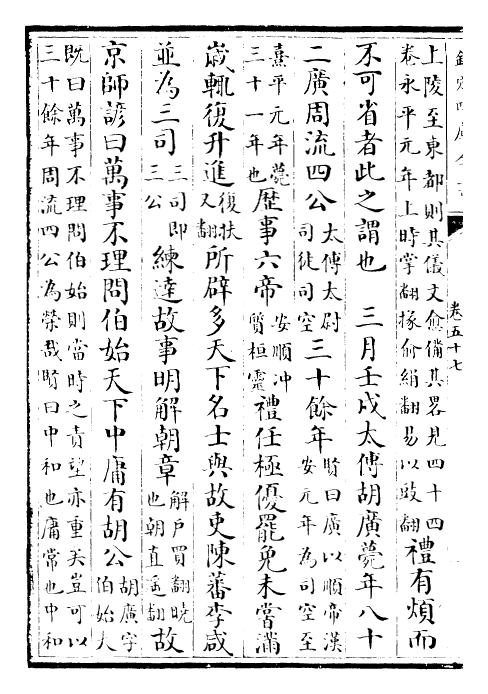 卷五十七
上陵至東都則其儀文愈備其畧見四十四
卷永平元年上時掌翻掾俞絹翻易以豉翻
禮有煩而
不可省者此之謂也　三月壬戌太傅胡廣薨年八十
二廣周流四公
太傅太尉
司徒司空
三十餘年
賢曰廣以順帝漢
安元年為司空至
熹平元年薨
三十一年也
歷事六帝
安順冲
質桓靈
禮任極優罷免未嘗滿
歲輒復升進
復扶
又翻
所辟多天下名士與故吏陳蕃李咸
並為三司
三司即
三公
練達故事明解朝章
解戶買翻曉
也朝直遥翻
故
京師諺曰萬事不理問伯始天下中庸有胡公
胡廣字
伯始夫
既曰萬事不理問伯始則當時之責望亦重矣豈可以
三十餘年周流四公為榮哉賢曰中和也庸常也中和